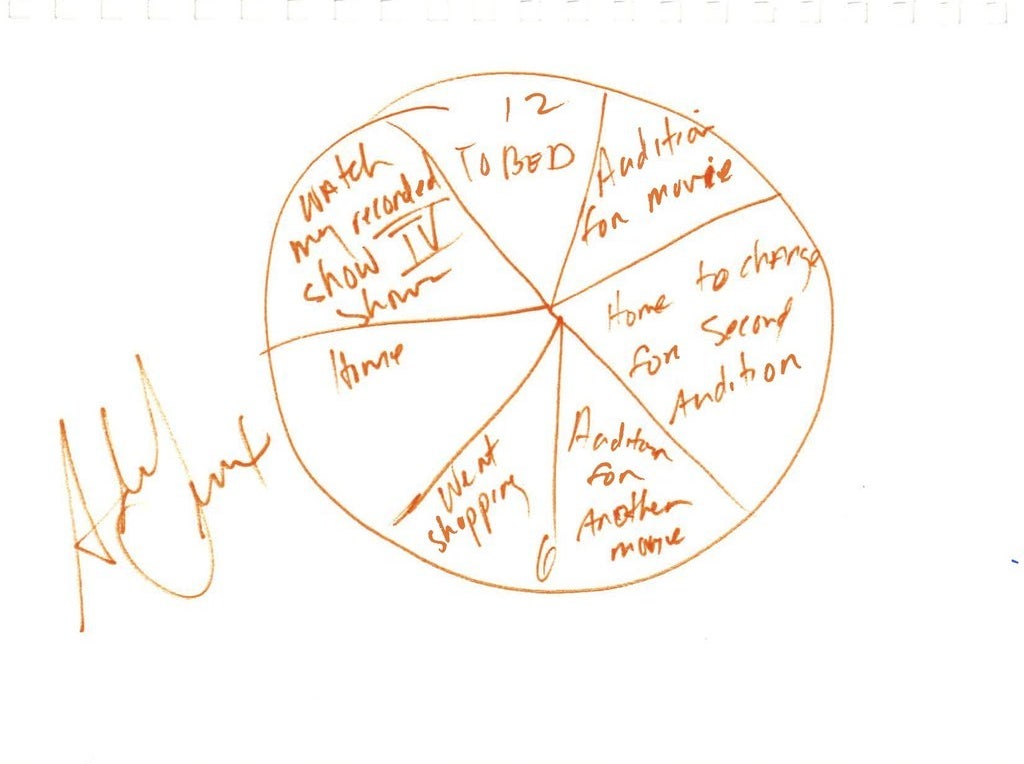 12
TO BED
Audition
for movie
Home to change
for second
Audition
Audition
for
Another
movie
6
Went
shopping
Home
Watch
my recorded
show TV
shows